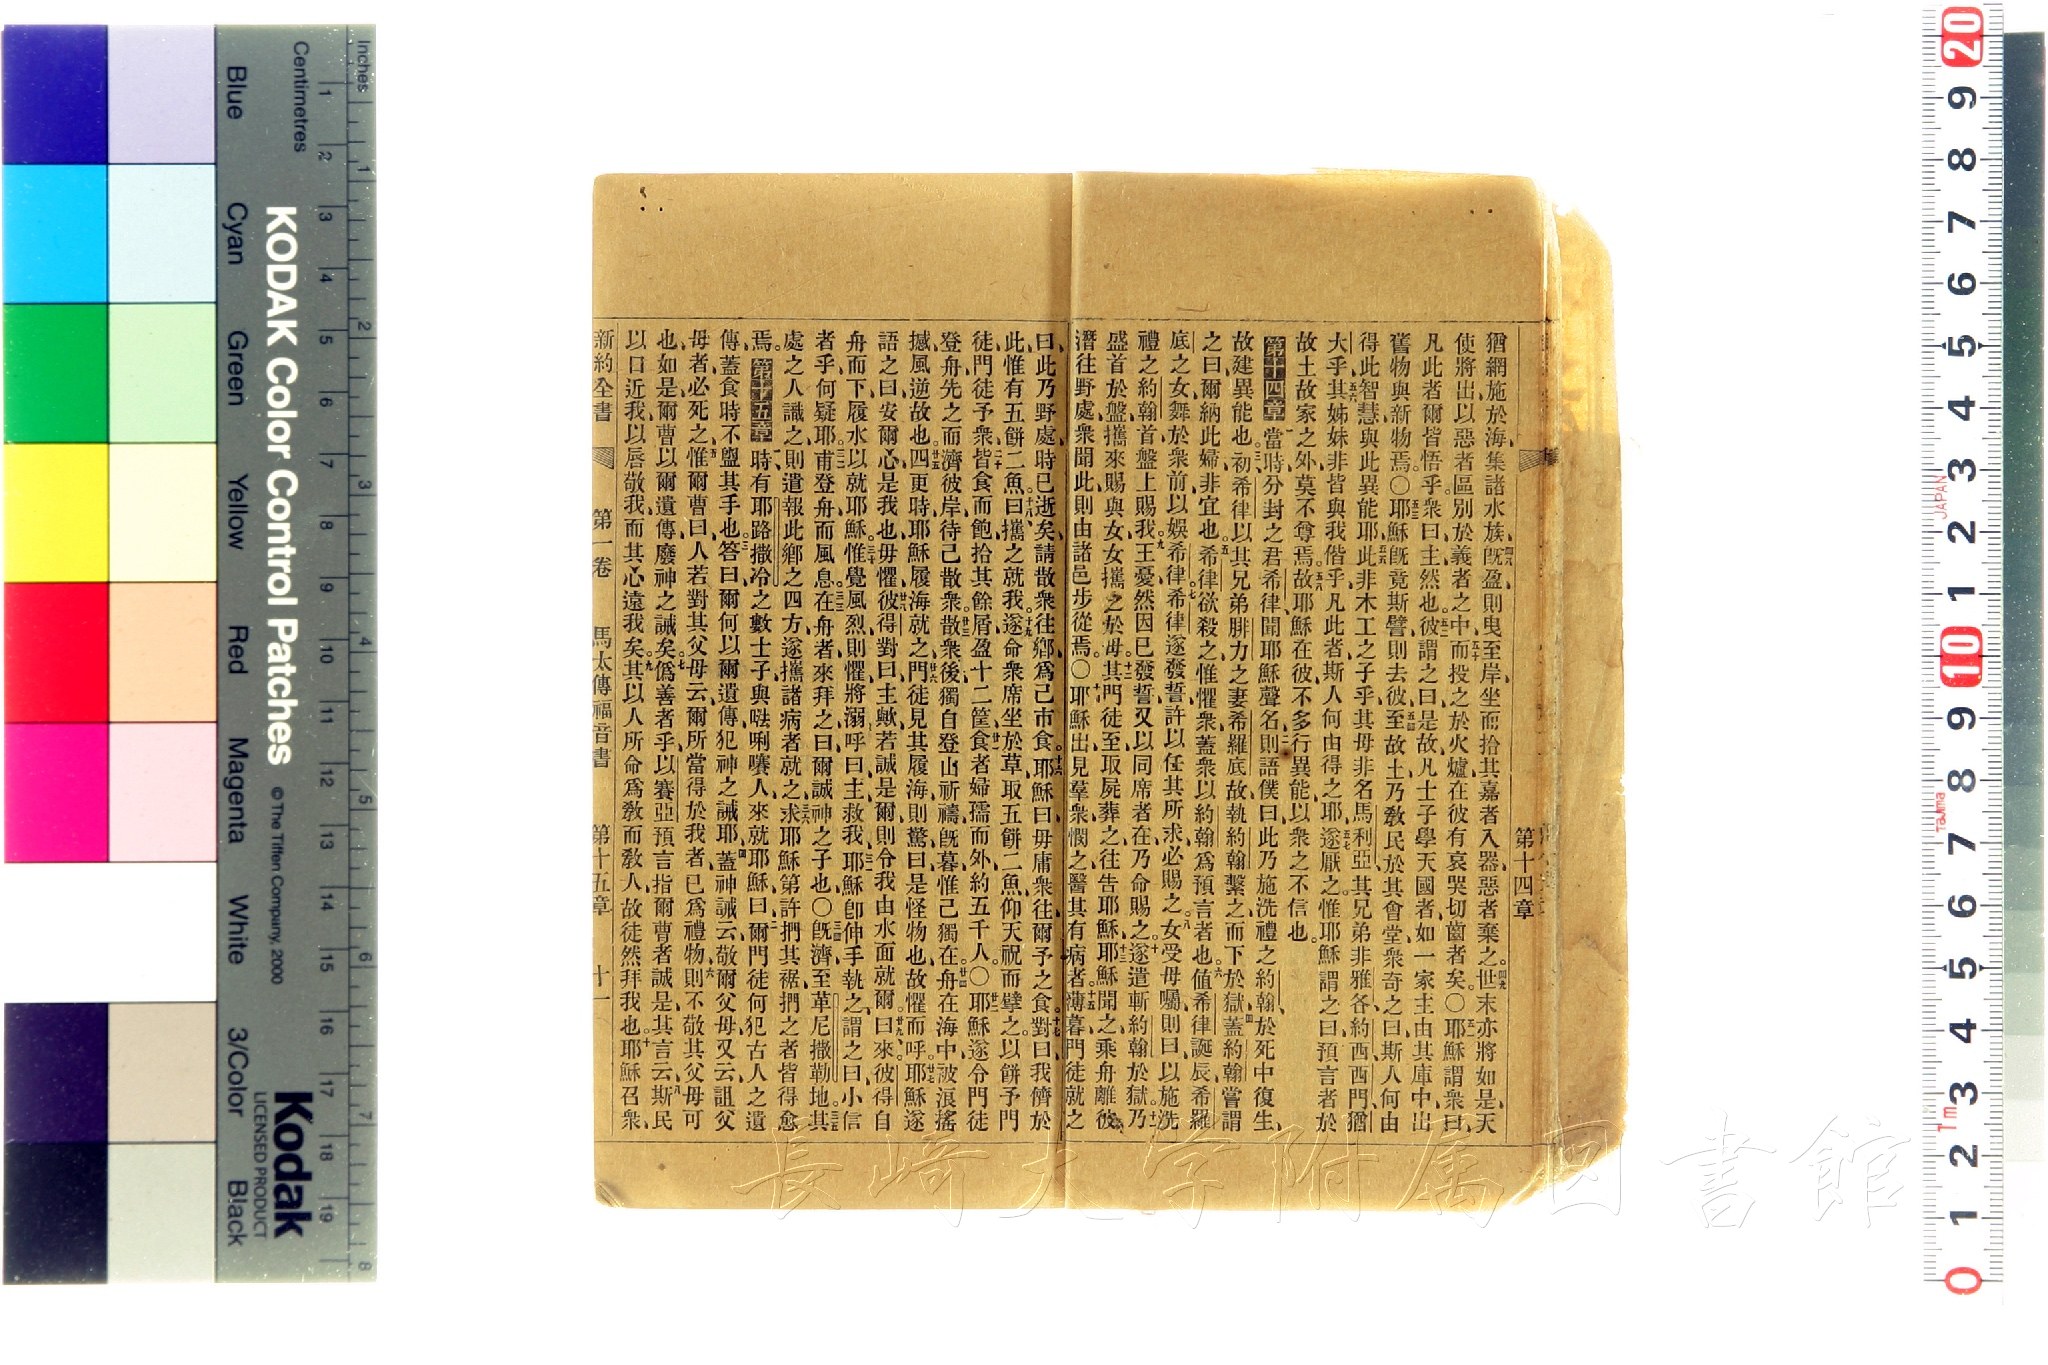 第十四章
猶網施於海集諸水族旣盈則曳至岸坐而拾其嘉者入器惡者棄之世末亦將如是天
使將出以惡者區別於義者之中而投之於火爐在彼有哀哭切齒者矣〇耶穌謂衆曰
凡此者爾皆悟乎衆曰主然也彼謂之曰是故凡士子學天國者如一家主由其庫中出
舊物與新物焉〇耶穌旣竟斯譬則去彼至故土乃敎民於其會堂衆奇之曰斯人何由
得此智慧與此異能耶此非木工之子乎其母非名馬利亞其兄弟非雅各約西西門猶
大乎其姊妹非皆與我偕乎凡此者斯人何由得之耶遂厭之惟耶穌謂之曰預言者於
故土故家之外莫不尊焉故耶穌在彼不多行異能以衆之不信也
第十四章 當時分封之君希律聞耶穌聲名則語僕曰此乃施洗禮之約翰於死中復生
故建異能也初希律以其兄弟腓力之妻希羅底故執約翰繫之而下於獄蓋約翰嘗謂
之曰爾納此婦非宜也希律欲殺之惟懼衆蓋衆以約翰爲預言者也値希律誕辰希羅
底之女舞於衆前以娛希律希律遂發誓許以任其所求必賜之女受母囑則曰以施洗
禮之約翰首盤上賜我王憂然因已發誓又以同席者在乃命賜之遂遣斬約翰於獄乃
盛首於盤攜來賜與女女攜之於母其門徒至取屍葬之往告耶穌耶穌聞之乘舟離彼
潛往野處衆聞此則由諸邑步從焉〇耶穌出見羣衆憫之醫其有病者薄暮門徒就之
曰此乃野處時已逝矣請散衆往鄉爲己市食耶穌曰毋庸衆往爾予之食對曰我儕於
此惟有五餅二魚曰攜之就我遂命衆席坐於草取五餅二魚仰天祝而擘之以餅予門
徒門徒予衆皆食而飽拾其餘屑盈十二筐食者婦孺而外約五千人〇耶穌遂令門徒
登舟先之而濟彼岸待己散衆散衆後獨自登山祈禱旣暮惟己獨在舟在海中被浪搖
撼風逆故也四更時耶穌履海就之門徒見其履海則驚曰是怪物也故懼而呼耶穌遂
語之曰安爾心是我也毋懼彼得對曰主歟若誠是爾則令我由水面就爾曰來彼得自
舟而下履水以就耶穌惟覺風烈則懼將溺呼曰主救我耶穌卽伸手執之謂之曰小信
者乎何疑耶甫登舟而風息在舟者來拜之曰爾誠神之子也〇旣濟至革尼撒勒地其
處之人識之則遣報此鄉之四方遂攜諸病者就之求耶穌第許捫其裾捫之者皆得愈
焉 第十五章 時有耶路撒冷之數士子與𠵽唎㘔人來就耶穌曰爾門徒何犯古人之遺
傳蓋食時不盥其手也答曰爾何以爾遺傳犯神之誡耶蓋神誡云敬爾父母又云詛父
母者必死之惟爾曹曰人若對其父母云爾所當得於我者已爲禮物則不敬其父母可
也如是爾曹以爾遺傳廢神之誡矣僞善者乎以賽亞預言指爾曹者誠是其言云斯民
以口近我以唇敬我而其心遠我矣其以人所命爲敎而敎人故徒然拜我也耶穌召衆
新約全書 第一卷 馬太傳福音書 第十五章 十一
Inches
Centimetres
KODAK Color Control Patches © The Tiffen Company, 2000
Kodak
LICENSED PRODUCT
Blue Cyan Green Yellow Red Magenta White 3/Color Black
1 2 3 4 5 6 7 8 9 10 11 12 13 14 15 16 17 18 19
1 2 3 4 5 6 7 8
20 9 8 7 6 5 4 3 2 1 10 9 8 7 6 5 4 3 2 1 0
JAPAN
Tajima
Tm
長崎大学附属図書館